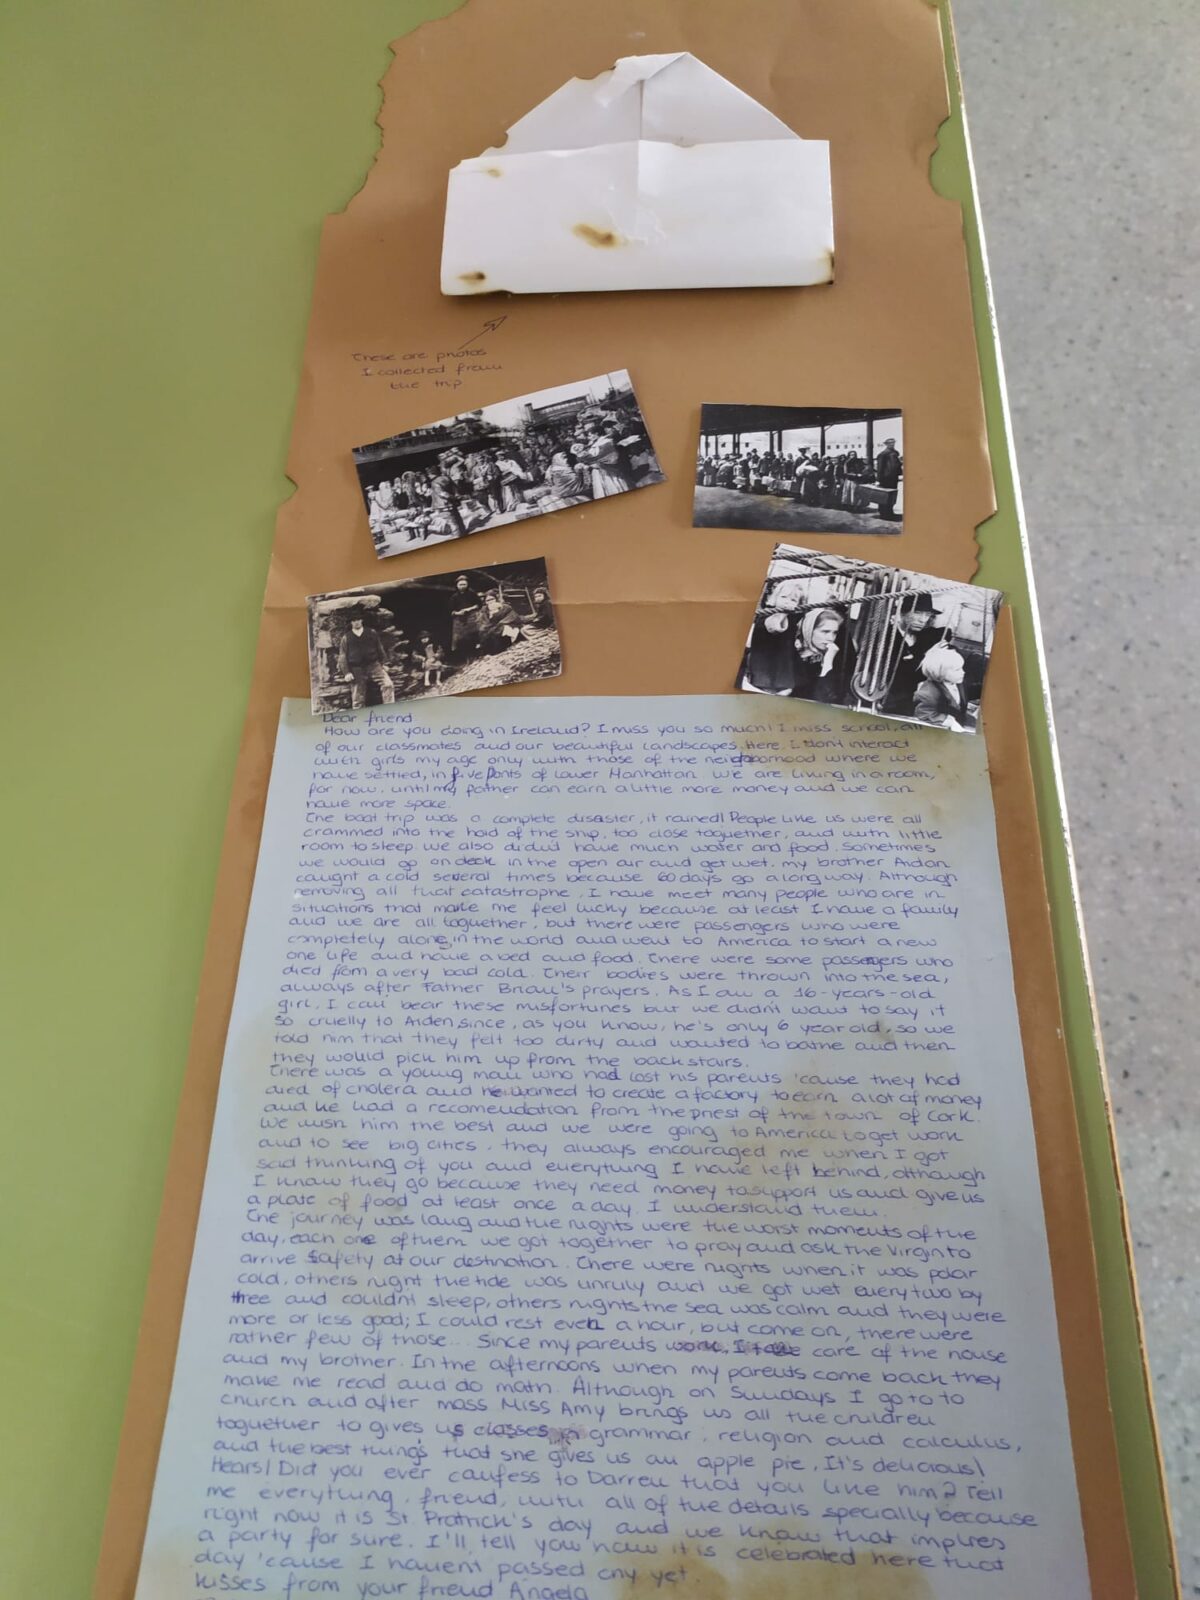 These are photos
I collected from
the trip
Dear friend
How are you doing in Ireland? I miss you so much! I miss school, all
of our classmates and our beautiful landscapes. Here, I don't interact
with girls my age only with those of the neighborhood where we
have settled, in five Points of lower Manhattan. We are living in a room,
for now, until my father can earn a little more money and we can
have more space.
The boat trip was a complete disaster, it rained! People like us were all
crammed into the hold of the ship, too close toguether, and with little
room to sleep. We also didn't have much water and food. Sometimes
we would go on deck in the open air and get wet. my brother Aidan
caught a cold several times because 60 days go a long way. Although
removing all that catastrophe, I have meet many people who are in
situations that make me feel lucky because at least I have a family
and we are all toguether, but there were passengers who were
completely alone in the world and went to America to start a new
one life and have a bed and food. There were some passengers who
died from a very bad cold. Their bodies were thrown into the sea,
always after Father Brian's prayers. As I am a 16-years-old
girl, I can bear these misfortunes but we didn't want to say it
so cruelly to Aiden, since, as you know, he's only 6 year old, so we
told him that they felt too dirty and wanted to bathe and then
they would pick him up from the back stairs.
There was a young man who had lost his parents 'cause they had
died of cholera and he wanted to create a factory to earn a lot of money
and he had a recomendation from the priest of the town of Cork.
We wish him the best and we were going to America to get work
and to see big cities, they always encouraged me when I got
sad thinking of you and everything I have left behind, although
I know they go because they need money to support us and give us
a plate of food at least once a day. I understand them.
The journey was long and the nights were the worst moments of the
day, each one of them we got together to pray and ask the Virgin to
arrive safety at our destination. There were nights when it was polar
cold, others night the tide was unruly and we got wet every two by
three and couldn't sleep, others nights the sea was calm and they were
more or less good; I could rest even a hour, but come on, there were
rather few of those... Since my parents work, I take care of the house
and my brother. In the afternoons when my parents come back they
make me read and do math. Although on Sundays I go to to
church and after mass Miss Amy brings us all the children
toguether to gives us classes of grammar, religion and calculus,
and the best things that she gives us an apple pie, It's delicious!
Hears! Did you ever confess to Darren that you like him? Tell
me everything, friend, with all of the details specially because
right now it is St Pratrick's day and we know that implies
a party for sure. I'll tell you how it is celebrated here that
day 'cause I havent passed any yet.
kisses from your friend Angela